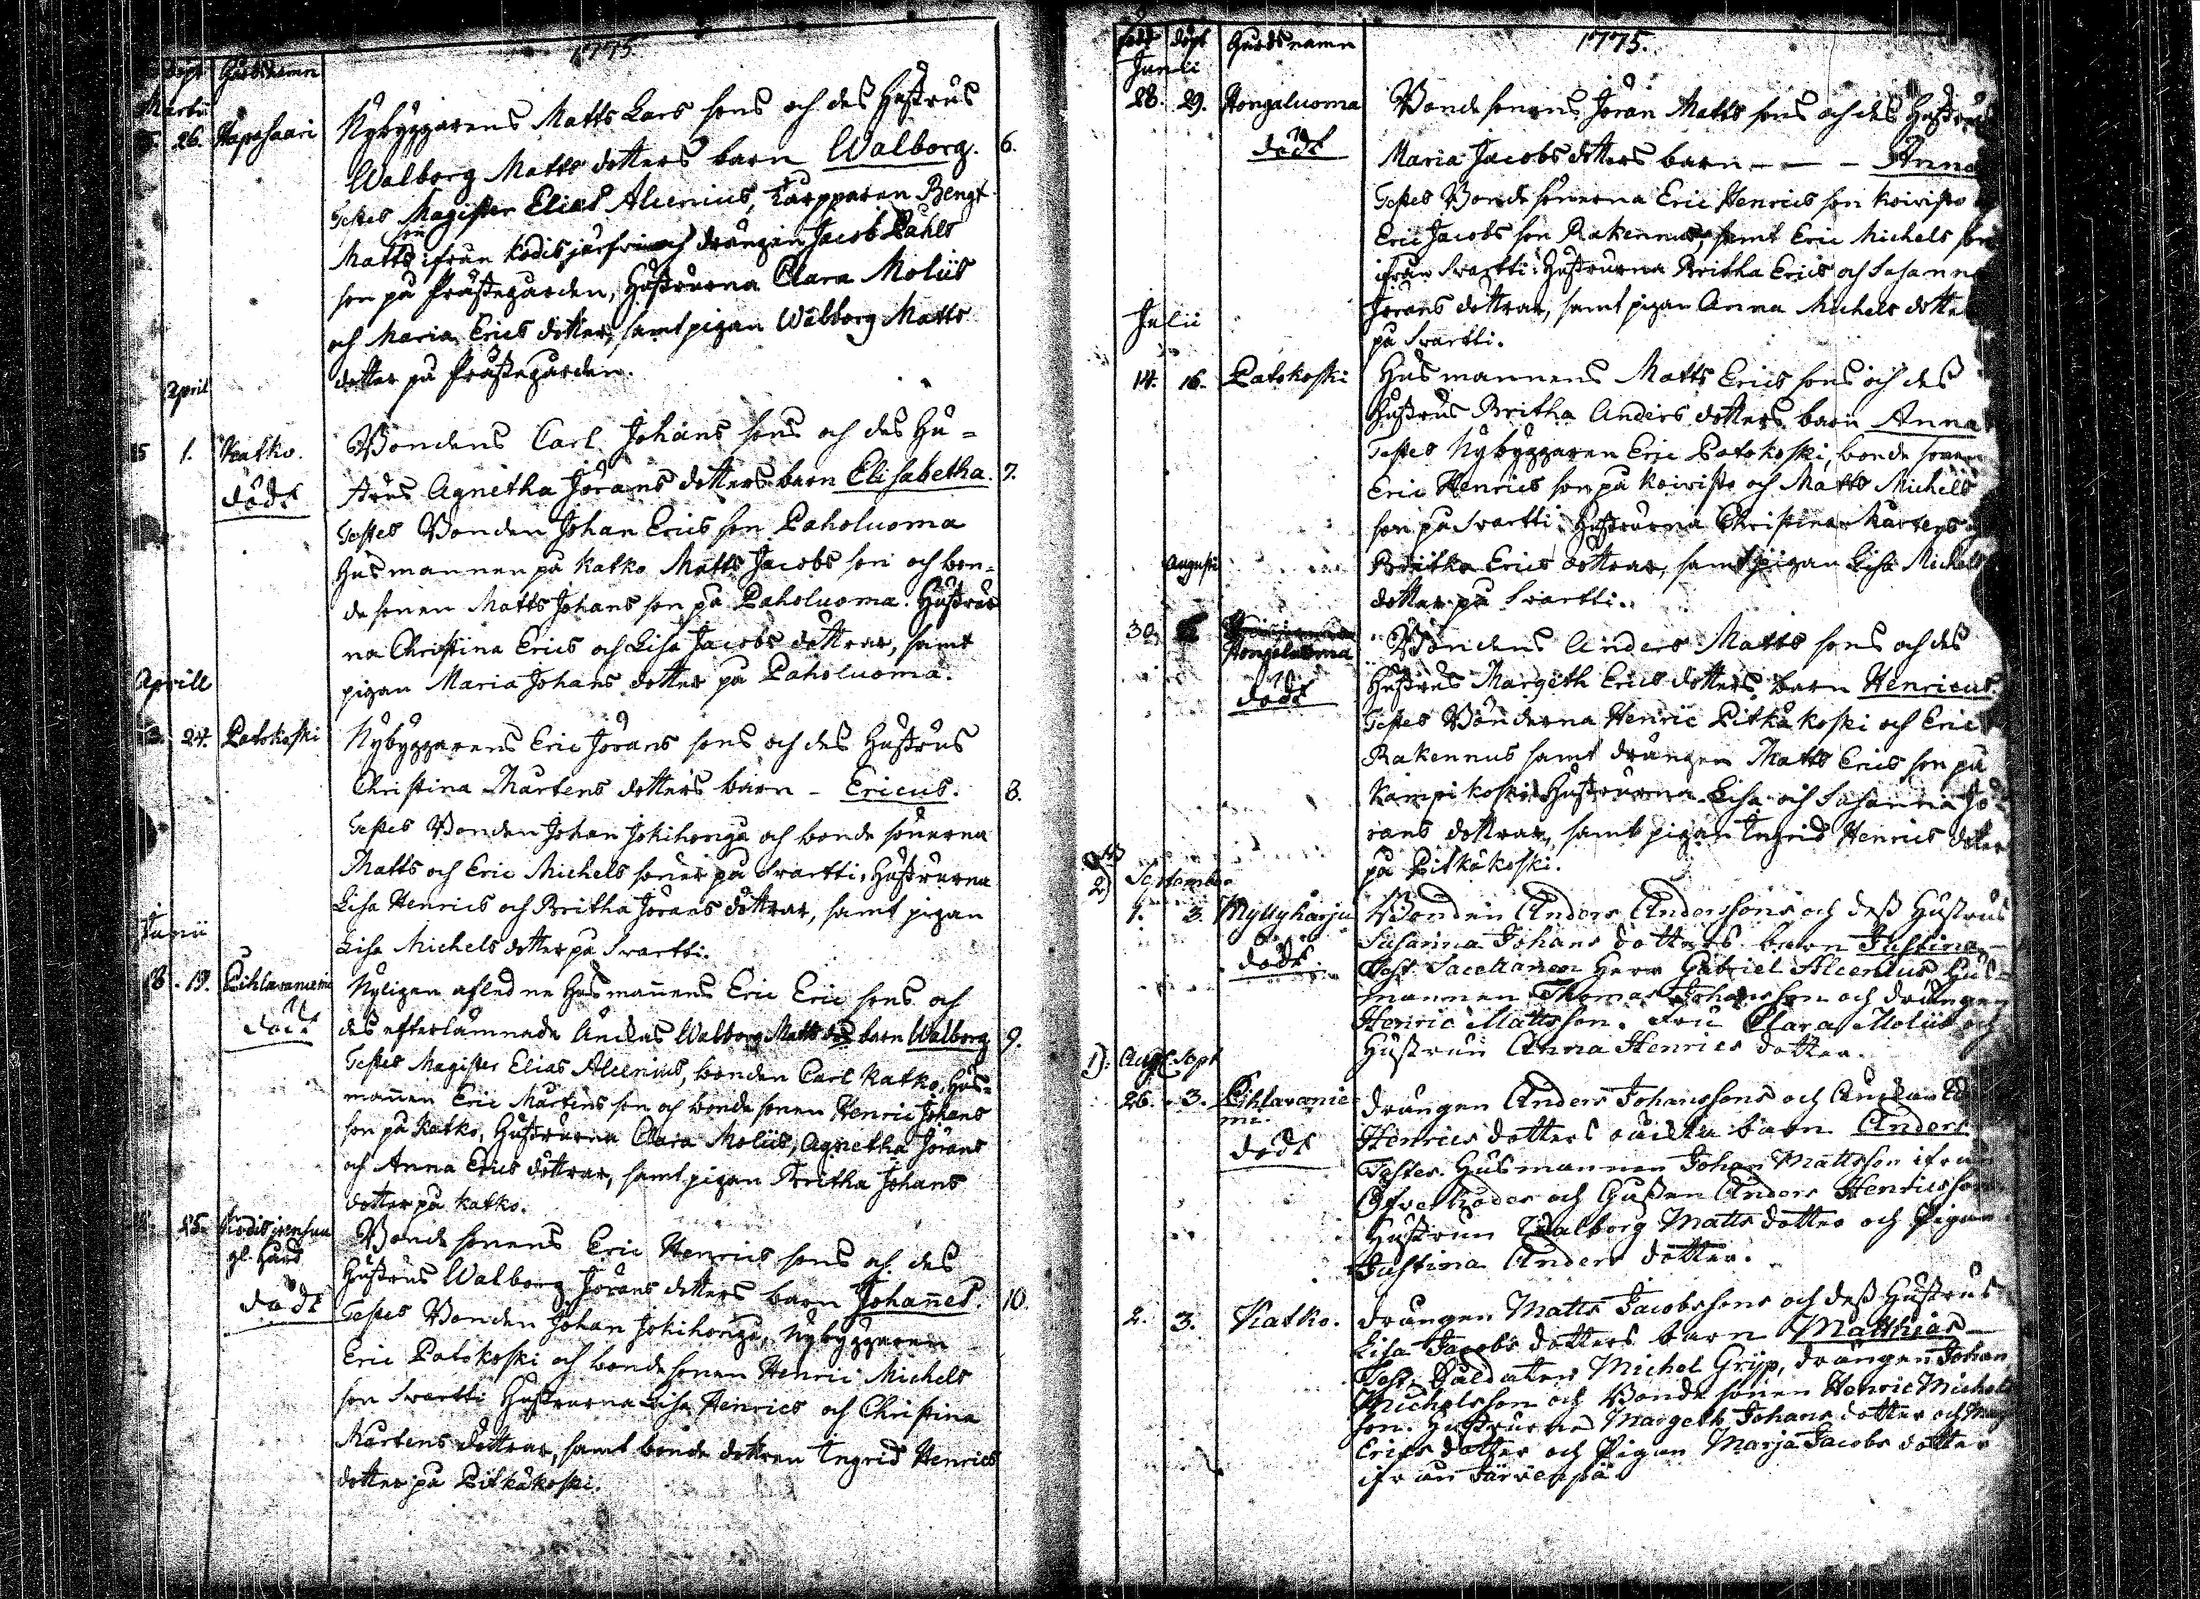 1775.
döpt Gårds namn
Martii
26. Haposaari Nybyggarens Matts Lars sons och des Hustrus
Walborg Matts dotters barn Walborg. 6.
Testes Magister Elias Alcenius, Karpparen Bengt
Matts son ifrån Kodisjärfvi och drängen Jacob Påhls
son på Prästegården, Hustrurna Clara Moliis
och Maria Erics dotter, samt pigan Walborg Matts
dotter på Prästegården.
April
1. Katko. Bondens Carl Johans sons och des Hu=
strus Agnetha Jörans dotters barn Elisabetha. 7.
dödt
Testes Bonden Johan Erics son Paholuoma
Husmannen på Katko Matts Jacobs son och bon=
de sonen Matts Johans son på Paholuoma. Hustrur
na Christina Erics och Lisa Jacobs döttrar, samt
pigan Maria Johans dotter på Paholuoma.
Aprill
24. Patokoski Nybyggarens Eric Jörans sons och des Hustrus
Christina Mårtens dotters barn - Ericus. 8.
Testes Bonden Johan Jokihonga och bonde sönerna
Matts och Eric Michels söner på Svartti, Hustrurna
Lisa Henrics och Britha Jörans döttrar, samt pigan
Lisa Michels dotter på Svartti.
Junii
18. 19. Pihlavaniemi Nyligen afledne Husmannens Eric Eric sons och
dödt
des efterlämnade Änkas Walborg Matts dos barn Walborg 9.
Testes Magister Elias Alcenius, bonden Carl Katko, Hus=
mannen Eric Mårtens son och bonde sonen Henric Johans
son på Katko, Hustrurna Clara Moliis, Agnetha Jörans
och Anna Erics döttrar, samt pigan Britha Johans
dotter på Katko.
25. Kodisjoensuu Bonde sonens Eric Henrics sons och des
Hustrus Walborg Jörans dotters barn Johannes. 10.
dödt
Testes Bonden Johan Jokihonga, Nybyggaren
Eric Patokoski och bonde sonen Henric Michels
son Svartti Hustrurna Lisa Henrics och Christina
Mårtens döttrar, samt bonde dottren Ingrid Henrics
dotter på Pitkäkoski.
1775.
född döpt Gårds namn
Junii
28. 29. Hongaluoma Bonde sonens Jöran Matts sons och des Hustrus
dödt
Maria Jacobs dotters barn - - - Anna
Testes Bonde sönerna Eric Henrics son Koivisto
Eric Jacobs son Rakennus, samt Eric Michels son
ifrån Svartti: Hustrurna Britha Erics och Susanna
Jörans döttrar, samt pigan Anna Michels dotter
på Svartti.
Julii
14. 16. Patokoski Husmannens Matts Erics sons och des
Hustrus Britha Anders dotters barn Anna
Testes Nybyggaren Eric Patokoski, bonde sonen
Eric Henrics son på Koivisto och Matts Michels
son på Svartti. Hustrurna Christina Mårtens
Britha Erics döttrar, samt pigan Lisa Michels
dotter på Svartti.
Augusti
30. Hongaluoma Bondens Anders Matts sons och des
dödt
Hustrus Margeth Erics dotters barn Henricus.
Testes Bönderna Henric Pitkäkoski och Eric
Rakennus samt drängen Matts Erics son på
Kampikoski Hustrurna Lisa och Susanna Jö=
rans döttrar, samt pigan Ingrid Henrics dotter
på Pitkäkoski.
2) September
1. 3. Myllyharju Bonden Anders Anderssons och dess Hustrus
dödt.
Susanna Johans dotters barn Justina
Test. Sacellanen Herr Gabriel Alcenius Hus=
mannen Thomas Johansson och drängen
Henric Mattsson. Fru Clara Moliis och
Hustrun Anna Henrics dotter.
1): Aug. Sept
26. 3. Pihlavanie
mi.
dödt
drängen Anders Johanssons och
Henrics dotters barn Anders
Testes Husmannen Johan Mattsson ifrån
och Anders Henricsson
Hustrun Walborg Matts dotter och Pigan
Justina Anders dotter.
2. 3. Katko. drängen Matts Jacobssons och dess Hustrus
Lisa Jacobs dotters barn Matthias
Test. Soldaten Michel Gryp, drängen Johan
Michelsson och Bonde sonen Henric Michels
son. Hustrurna Margeth Johans dotter och
Erics dotter och Pigan Marja Jacobs dotter
ifrån Järvenpä